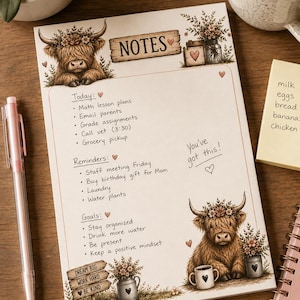 NOTES
Today:
• Math lesson plans
• Email parents
• Grade assignments
• Call vet (3:30)
• Grocery pickup
Reminders:
• Staff meeting Friday
• Buy birthday gift for Mom
• Laundry
• Water plants
You've
got this!
Goals:
• Stay organized
• Drink more water
• Be present
• Keep a positive mindset
milk
eggs
bread
banana
chicken